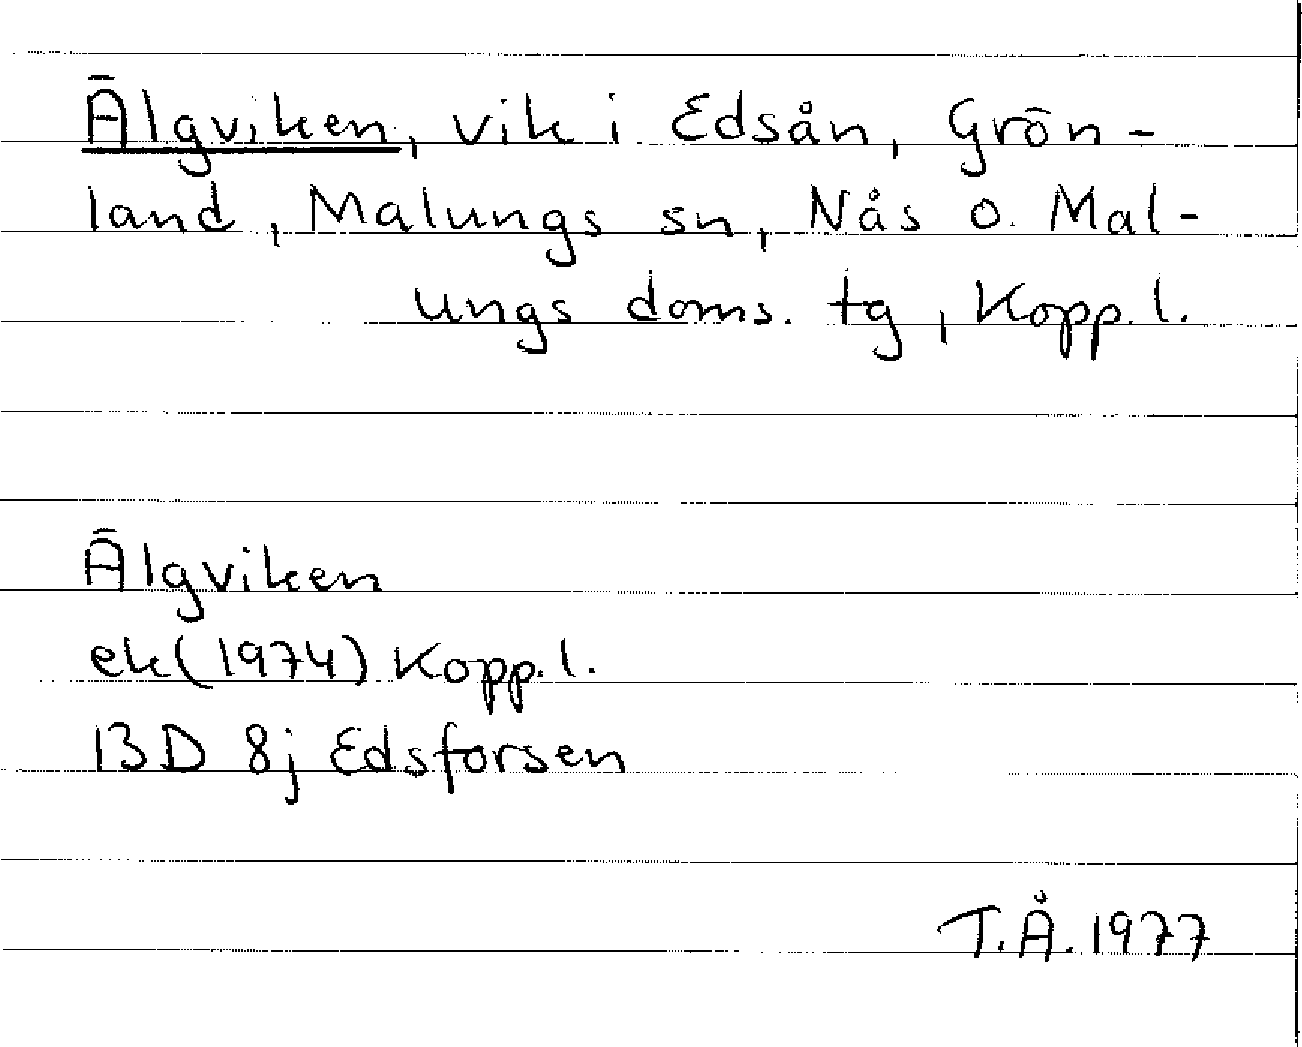 Älgviken, vik i Edsån, Grön-
land, Malungs sn, Nås o. Mal-
ungs doms. tg, Kopp. l.
Älgviken
ek (1974) Kopp. l.
13D 8j Edsforsen
T.Å. 1977